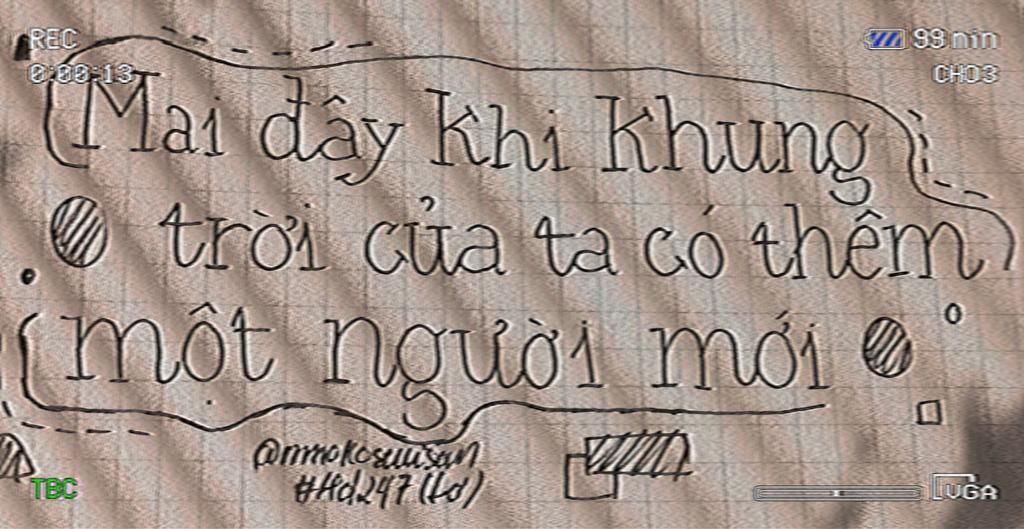 REC
99 min
0:00:13
CHO3
Mai đây khi khung
trời của ta có thêm
một người mới
@mmokosuuisan
#Hd247 (Lơ)
TBC
VGA